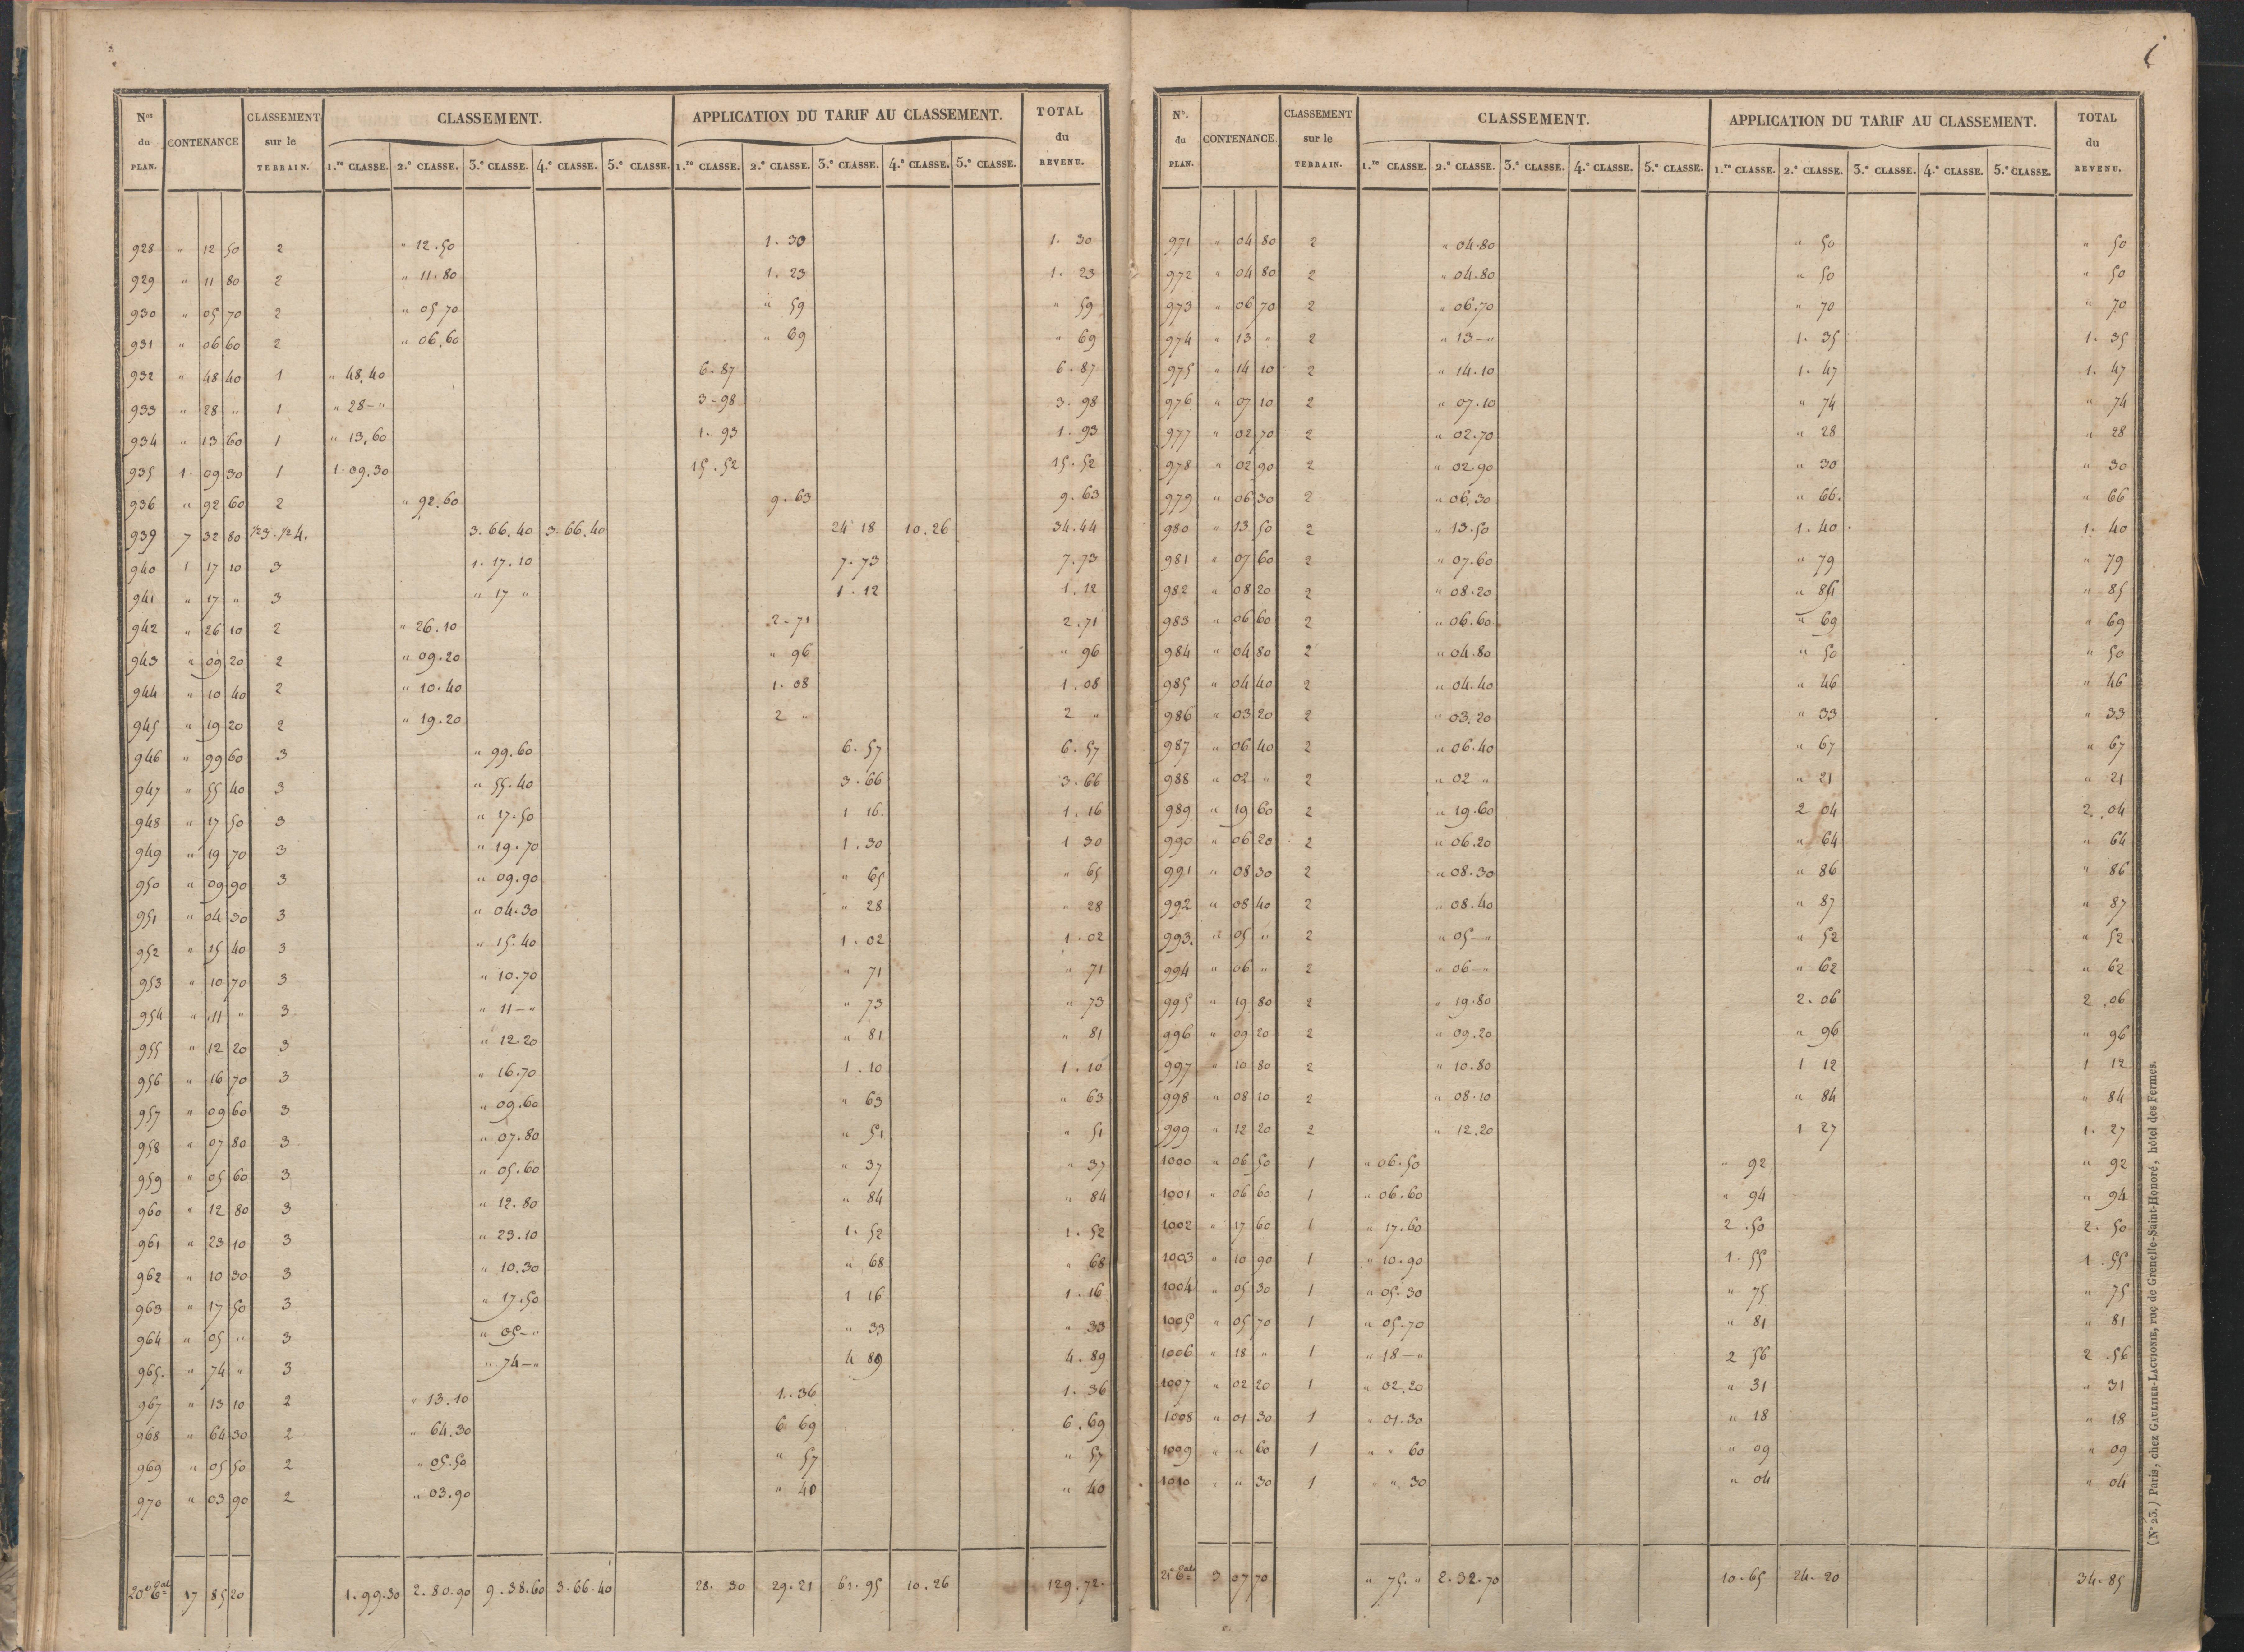 Nos du PLAN. CONTENANCE CLASSEMENT sur le TERRAIN. CLASSEMENT. APPLICATION DU TARIF AU CLASSEMENT. TOTAL du REVENU.
1.re CLASSE. 2.e CLASSE. 3.e CLASSE. 4.e CLASSE. 5.e CLASSE. 1.re CLASSE. 2.e CLASSE. 3.e CLASSE. 4.e CLASSE. 5.e CLASSE.
928 " 12 50 2 " 12.50 1. 30 1. 30
929 " 11 80 2 " 11.80 1. 23 1. 23
930 " 05 70 2 " 05 70 " 59 " 59
931 " 06 60 2 " 06.60 " 69 " 69
932 " 48 40 1 " 48.40 6.87 6.87
933 " 28 " 1 " 28-" 3-98 3.98
934 " 13 60 1 " 13,60 1.93 1.93
935 1. 09 30 1 1.09.30 15.52 15.52
936 " 92 60 2 " 92.60 9.63 9.63
939 7 32 80 1/23.1/24. 3.66.40 3.66.40 24 18 10.26 34.44
940 1 17 10 3 1.17.10 7.73 7.73
941 " 17 " 3 " 17 " 1.12 1.12
942 " 26 10 2 " 26.10 2-71 2.71
943 " 09 20 2 " 09.20 " 96 " 96
944 " 10 40 2 " 10.40 1.08 1.08
945 " 19 20 2 " 19.20 2 " 2 "
946 " 99 60 3 " 99.60 6.57 6.57
947 " 55 40 3 " 55.40 3.66 3.66
948 " 17 50 3 " 17.50 1 16. 1.16
949 " 19 70 3 " 19.70 1.30 1 30
950 " 09 90 3 " 09.90 " 65 " 65
951 " 04 30 3 " 04.30 " 28 " 28
952 " 15 40 3 " 15.40 1.02 1.02
953 " 10 70 3 " 10.70 " 71 " 71
954 " 11 " 3 " 11-" " 73 " 73
955 " 12 20 3 " 12.20 " 81 " 81
956 " 16 70 3 " 16.70 1.10 1.10
957 " 09 60 3 " 09.60 " 63 " 63
958 " 07 80 3 " 07.80 " 51 " 51
959 " 05 60 3 " 05.60 " 37 " 37
960 " 12 80 3 " 12.80 " 84 " 84
961 " 23 10 3 " 23.10 1.52 1.52
962 " 10 30 3 " 10.30 " 68 " 68
963 " 17 50 3 " 17.50 1 16 1.16
964 " 05 " 3 " 05-" " 33 " 33
965. " 74 " 3 " 74-" 4 89 4.89
967 " 13 10 2 " 13.10 1.36 1.36
968 " 64 30 2 " 64.30 6 69 6.69
969 " 05 50 2 " 05.50 " 57 " 57
970 " 03 90 2 " 03.90 " 40 " 40
17 85 20 1.99.30 2.80.90 9.38.60 3.66.40 28.30 29.21 61.95 10.26 129.72.
No. du PLAN. CONTENANCE. CLASSEMENT sur le TERRAIN. CLASSEMENT. APPLICATION DU TARIF AU CLASSEMENT. TOTAL du REVENU.
1.re CLASSE. 2.e CLASSE. 3.e CLASSE. 4.e CLASSE. 5.e CLASSE. 1.re CLASSE. 2.e CLASSE. 3.e CLASSE. 4.e CLASSE. 5.e CLASSE.
971 " 04 80 2 " 04.80 " 50 " 50
972 " 04 80 2 " 04.80 " 50 " 50
973 " 06 70 2 " 06.70 " 70 " 70
974 " 13 " 2 " 13-" 1.35 1.35
975 " 14 10 2 " 14.10 1.47 1.47
976 " 07 10 2 " 07.10 " 74 " 74
977 " 02 70 2 " 02.70 " 28 " 28
978 " 02 90 2 " 02.90 " 30 " 30
979 " 06 30 2 " 06.30 " 66. " 66
980 " 13 50 2 " 13.50 1.40. 1.40
981 " 07 60 2 " 07.60 " 79 " 79
982 " 08 20 2 " 08.20 " 85 " 85
983 " 06 60 2 " 06.60 " 69 " 69
984 " 04 80 2 " 04.80 " 50 " 50
985 " 04 40 2 " 04.40 " 46 " 46
986 " 03 20 2 " 03.20 " 33 " 33
987 " 06 40 2 " 06.40 " 67 " 67
988 " 02 " 2 " 02 " " 21 " 21
989 " 19 60 2 " 19.60 2 04 2.04
990 " 06 20 2 " 06.20 " 64 " 64
991 " 08 30 2 " 08.30 " 86 " 86
992 " 08 40 2 " 08.40 " 87 " 87
993. " 05 " 2 " 05-" " 52 " 52
994 " 06 " 2 " 06-" " 62 " 62
995 " 19 80 2 " 19.80 2.06 2.06
996 " 09 20 2 " 09.20 " 96 " 96
997 " 10 80 2 " 10.80 1 12 1 12
998 " 08 10 2 " 08.10 " 84 " 84
999 " 12 20 2 " 12.20 1 27 1.27
1000 " 06 50 1 " 06.50 " 92 " 92
1001 " 06 60 1 " 06.60 " 94 " 94
1002 " 17 60 1 " 17.60 2.50 2.50
1003 " 10 90 1 " 10.90 1.55 1.55
1004 " 05 30 1 " 05.30 " 75 " 75
1005 " 05 70 1 " 05.70 " 81 " 81
1006 " 18 " 1 " 18-" 2 56 2.56
1007 " 02 20 1 " 02.20 " 31 " 31
1008 " 01 30 1 " 01.30 " 18 " 18
1009 " " 60 1 " " 60 " 09 " 09
1010 " " 30 1 " " 30 " 04 " 04
3 07 70 " 75." 2.32.70 10.65 24.20 34.85
(No 23.) Paris, chez GAULTIER-LAGUIONIE, rue de Grenelle-Saint-Honoré, hôtel des Fermes.